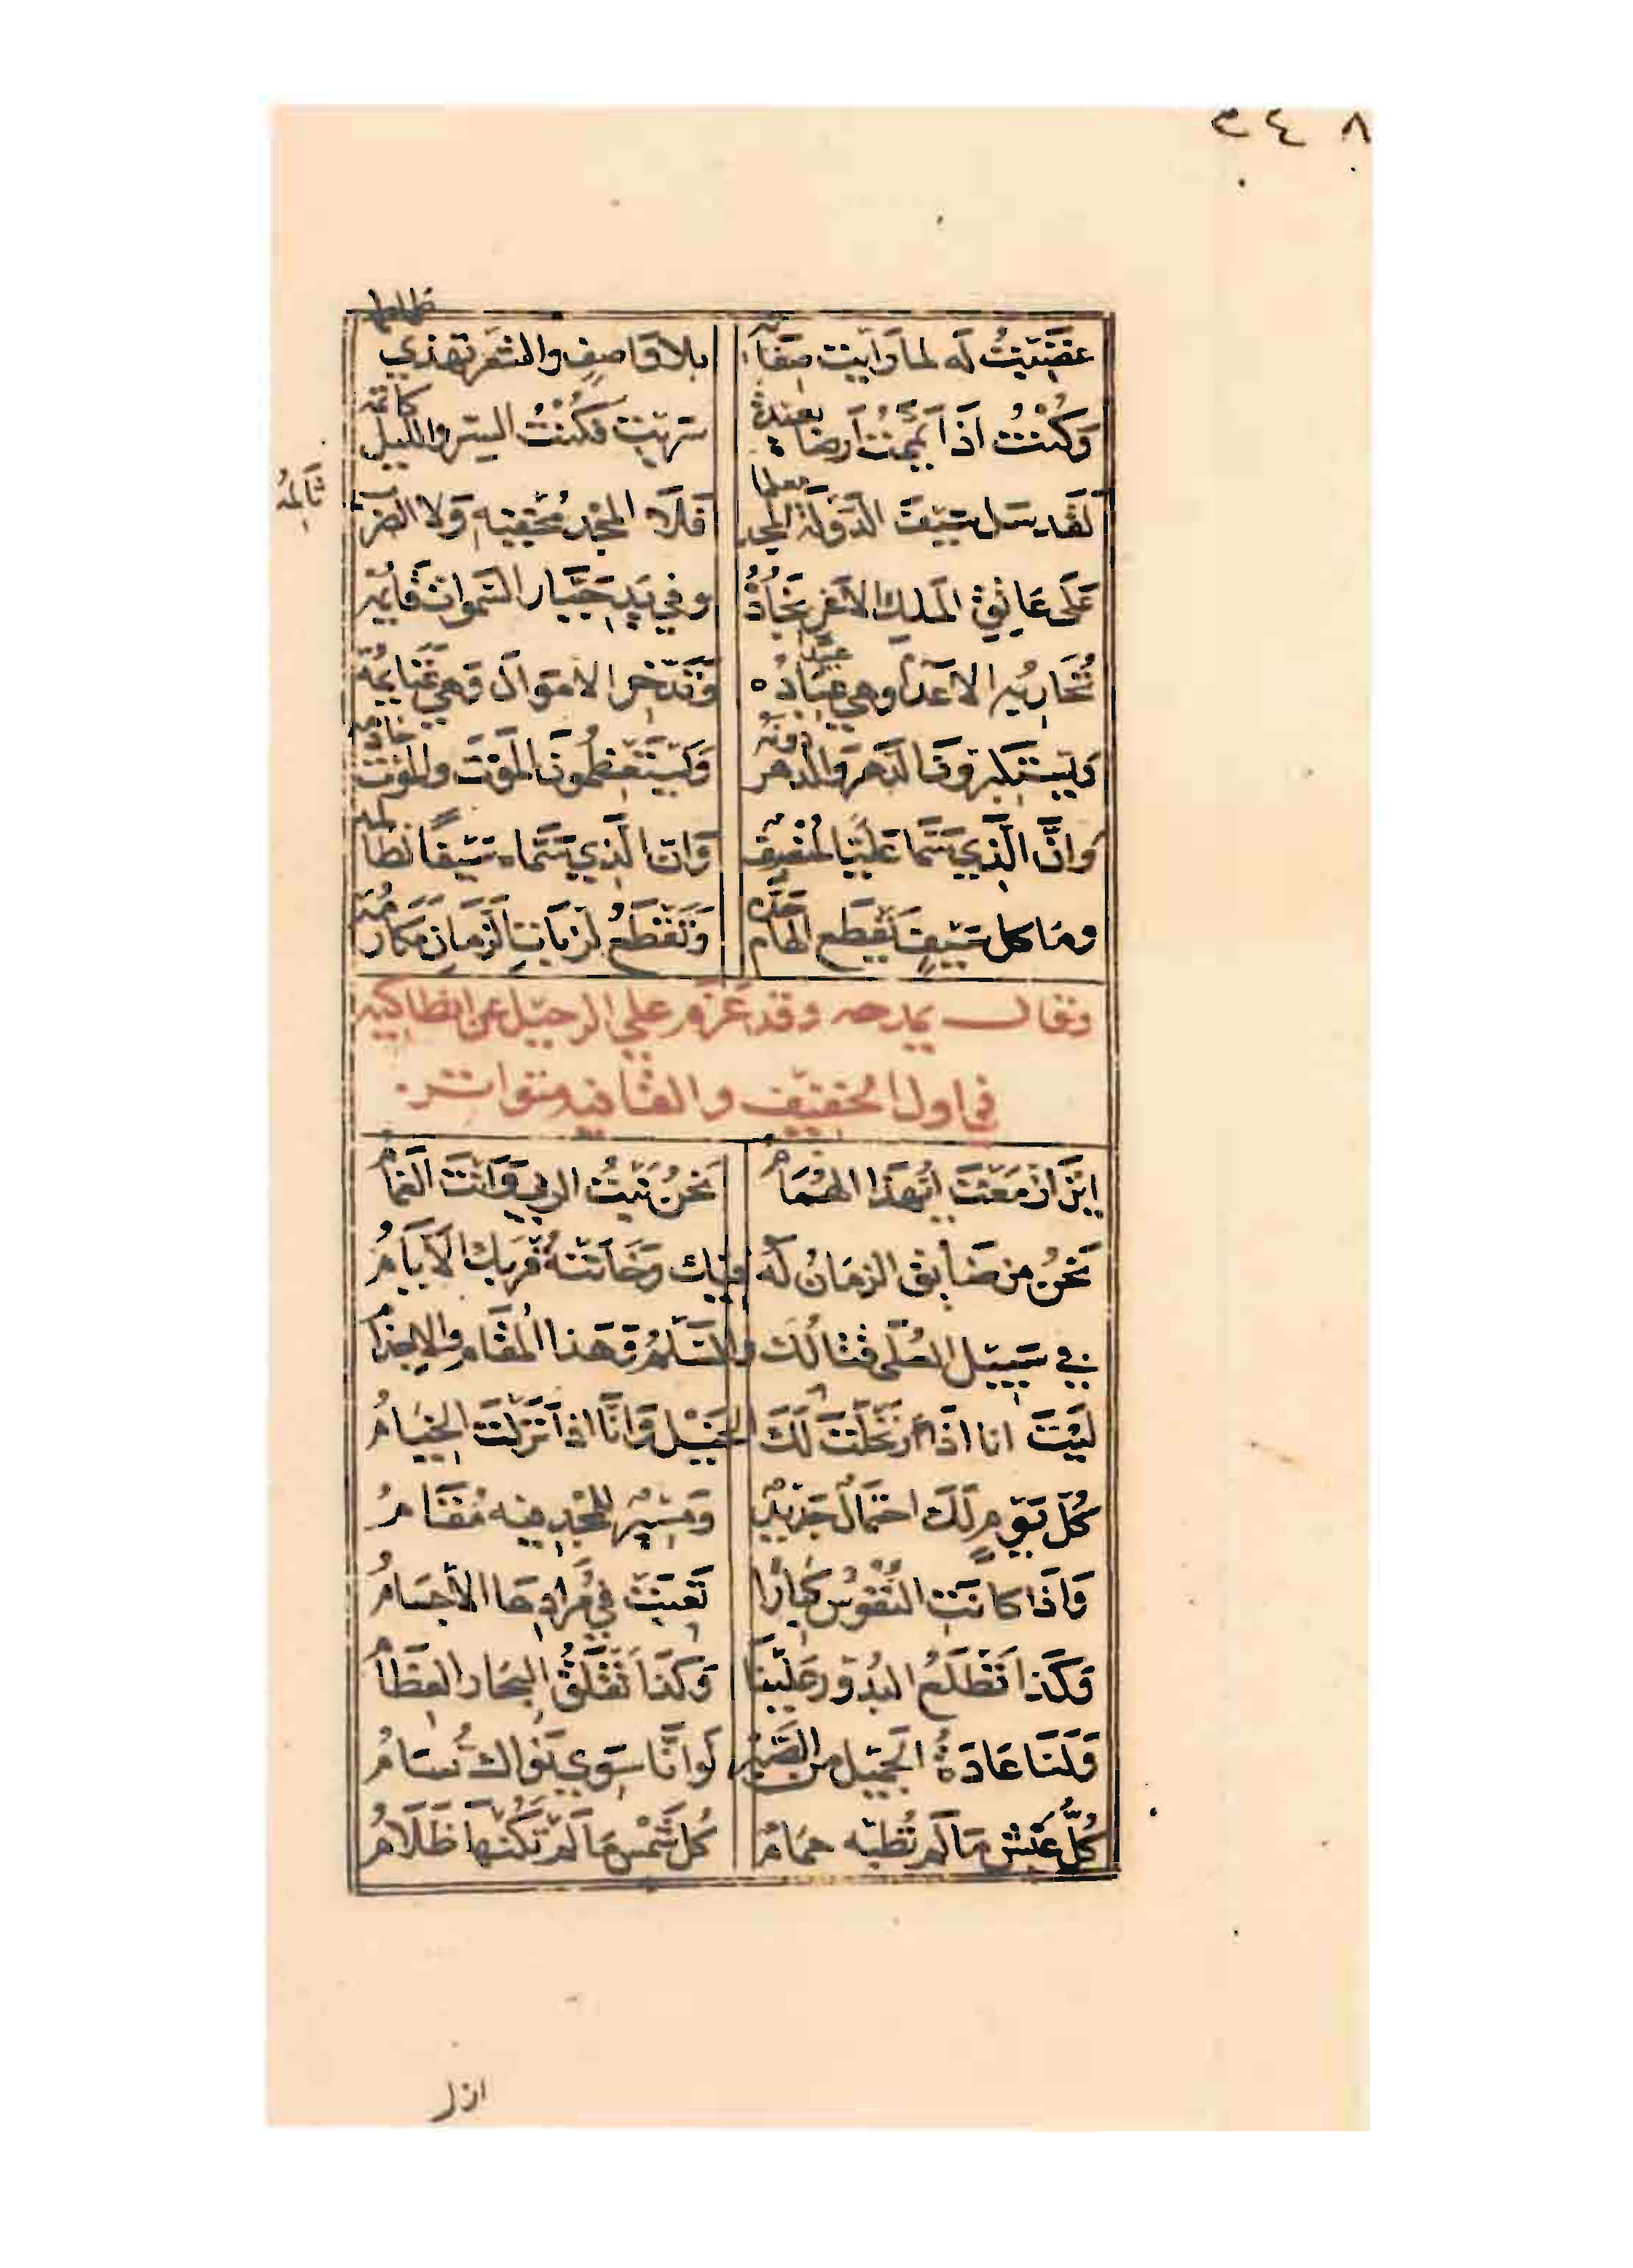 ٨ ٤ ٣
غَضِبْتُ لَه لما رَايْت صِفَاتِهِ بلا وَاصِفٍ والشعر تهذي طماطمه
وَكُنْتُ اذَا يَمَّمْتُ أَرضا بَعِيدةً سَرَيْت فَكُنْتُ السِّر والليل كاتمه
لَقَد سَل سَيْفَ الدَّوْلَة المجد معلما فَلَا المَجْد مُخْفِيهِ وَلا الضرب ثَالِمُهُ
عَلَى عَاتِقِ المَلِك الأَغَر نِجَادُهُ وفي يَدِ جَبَّار السَّموات قَائِمه
تُحَارِبُه الاعْدَا وهي عِبَادُه وَتَدَّخِر الامْوَالَ وَهي غَنَايِمُهْ
وَيَسْتَكْبِرُونَ الدَّهْرَ وَالدهر دونَهُ وَيَسْتَعْظِمُونَ المَوْتَ والمَوْت خادمه
وَانَّ الَّذِي سَمَّا عَلَيًّا لمُنْصِف وَان الَّذِي سَمَّاه سَيْفًا لظالمه
ومَا كل سَيْفٍ يَقْطَع الهَام حَدُّه وَتَقْطَعُ لَزْبَاتِ الزَّمَانِ مَكَارِمُه
وقال يمدحه وقد عَزَم على الرحيل عن انطاكيه
في اول الخفيف والقافيه متواتر
ايْنَ ازْمَعْتَ ايُّهَذا الهُمَامُ نَحْنُ نَبْتُ الربى وَانْتَ الغَمَامُ
نَحْنُ من ضَايق الزمَانُ لَهُ فيك وَخَانَتْهُ قُرْبَك الأَيَّامُ
في سَبِيل العُلَى قتَالُكَ والسِّلْمُ وَهَذا المُقَام والاِجْذَامُ
لَيْتَ انا اذَا ارْتَحَلْتَ لَكَ الخَيْل وَانَّا اذا نَزَلْتَ الخِيَامُ
كُلّ يَوْمٍ لَكَ احْتِمَالٌ جَدِيدٌ وَمَسِيْرٌ لِلمَجْدِ فِيْه مُقَامُ
وَاذَا كَانَتِ النُّفُوْسُ كِبَارًا تَعِبَتْ فِي مُرَادِهَا الأَجْسَامُ
وَكَذا تَطْلَعُ البُدُوْرُ عَلَيْنَا وَكَذَا تَقْلَقُ البِحَار العِظَامُ
وَلَنَا عَادَةُ الجَمِيل مِن الصَّبْر لَو انَّا سِوَى نَوَاك نُسَامُ
كُلُّ عَيْش مَا لَم تُطِبْه حِمَامٌ كُل شَمْس مَا لَمْ تَكُنْهَا ظَلَامُ
ازل